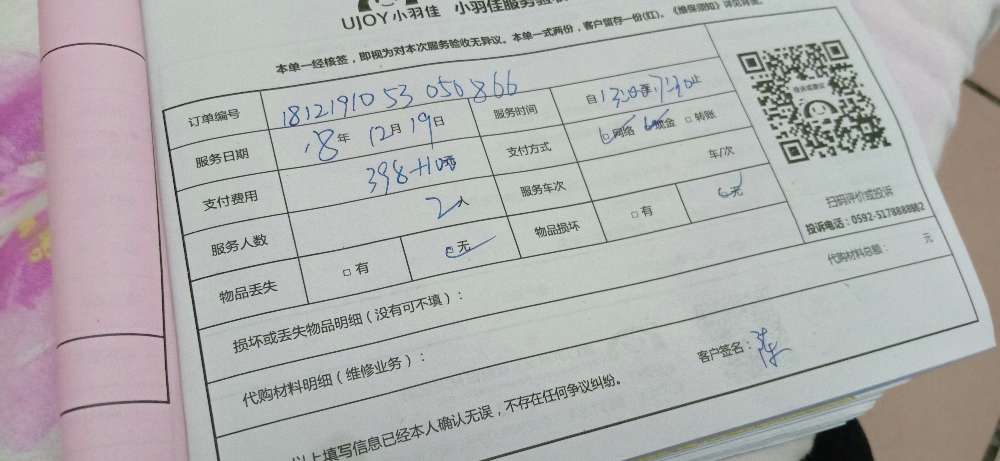 UJOY小羽佳 小羽佳服务验
本单一经核签，即视为对本次服务验收无异议。本单一式两份，客户留存一份(红)。《维保须知》详见背面。
订单编号 181219105 3 050866 服务时间 自13:00至17:30止
服务日期 18年 12月 19日 支付方式 □网络 □现金 □转账
支付费用 398+100元 服务车次 车/次
服务人数 2人 物品损坏 □有 □无
物品丢失 □有 □无
扫码评价或投诉
投诉电话：0592-5178888转2
损坏或丢失物品明细（没有可不填）：
代购材料明细（维修业务）： 代购材料总额： 元
客户签名：
以上填写信息已经本人确认无误，不存在任何争议纠纷。